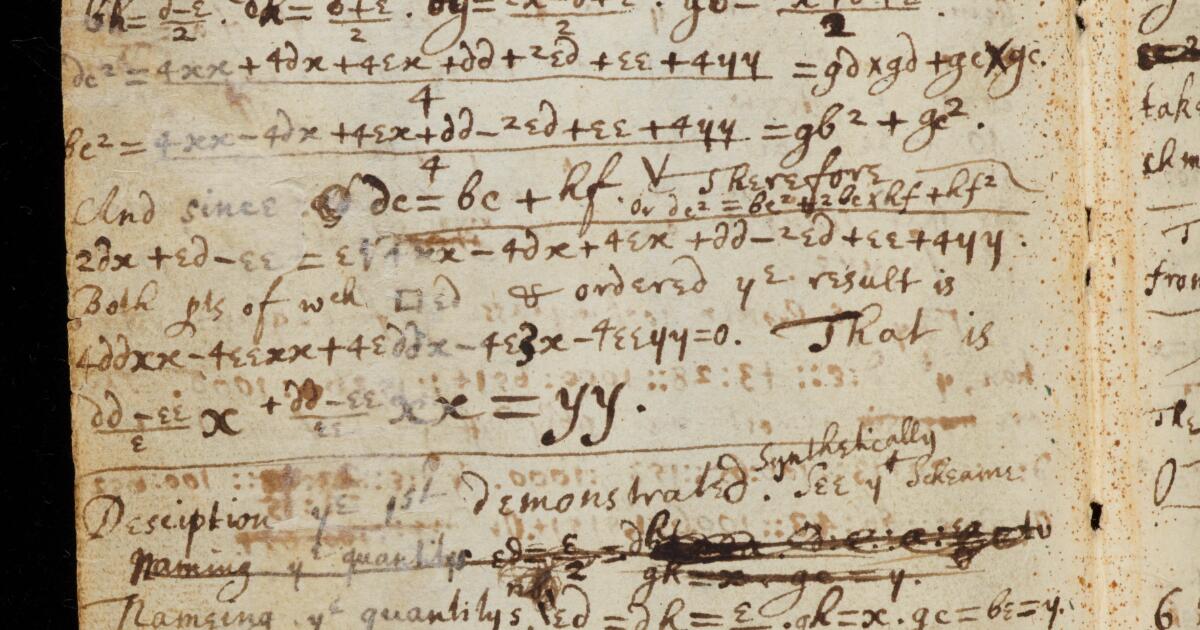 bh = d−ε/2 . dk = d+ε/2 .
dc² = 4xx + 4dx + 4εx + dd + 2εd + εε + 4yy / 4 = gd×gd + gc×gc.
bc² = 4xx − 4dx + 4εx + dd − 2εd + εε + 4yy / 4 = gb² + gc².
And since dc = bc + hf. Therefore
or dc² = bc² + 2bc×hf + hf²
2dx + εd − εε = ε√4xx − 4dx + 4εx + dd − 2εd + εε + 4yy :
Both pts of wch □ed & ordered ye result is
4ddxx − 4εεxx + 4εddx − 4ε3x − 4εεyy = 0. That is
dd − εε/ε x + dd − εε/εε xx = yy.
Desciption ye 1st demonstrated. Synthetically
See yt Scheame
Nameing ye quantitys εd = ε/2 = dk
gk = x. gc = y.
Nameing ye quantitys. εd = dk = ε . gk = x . gc = bε = y.
tak
from
The
6